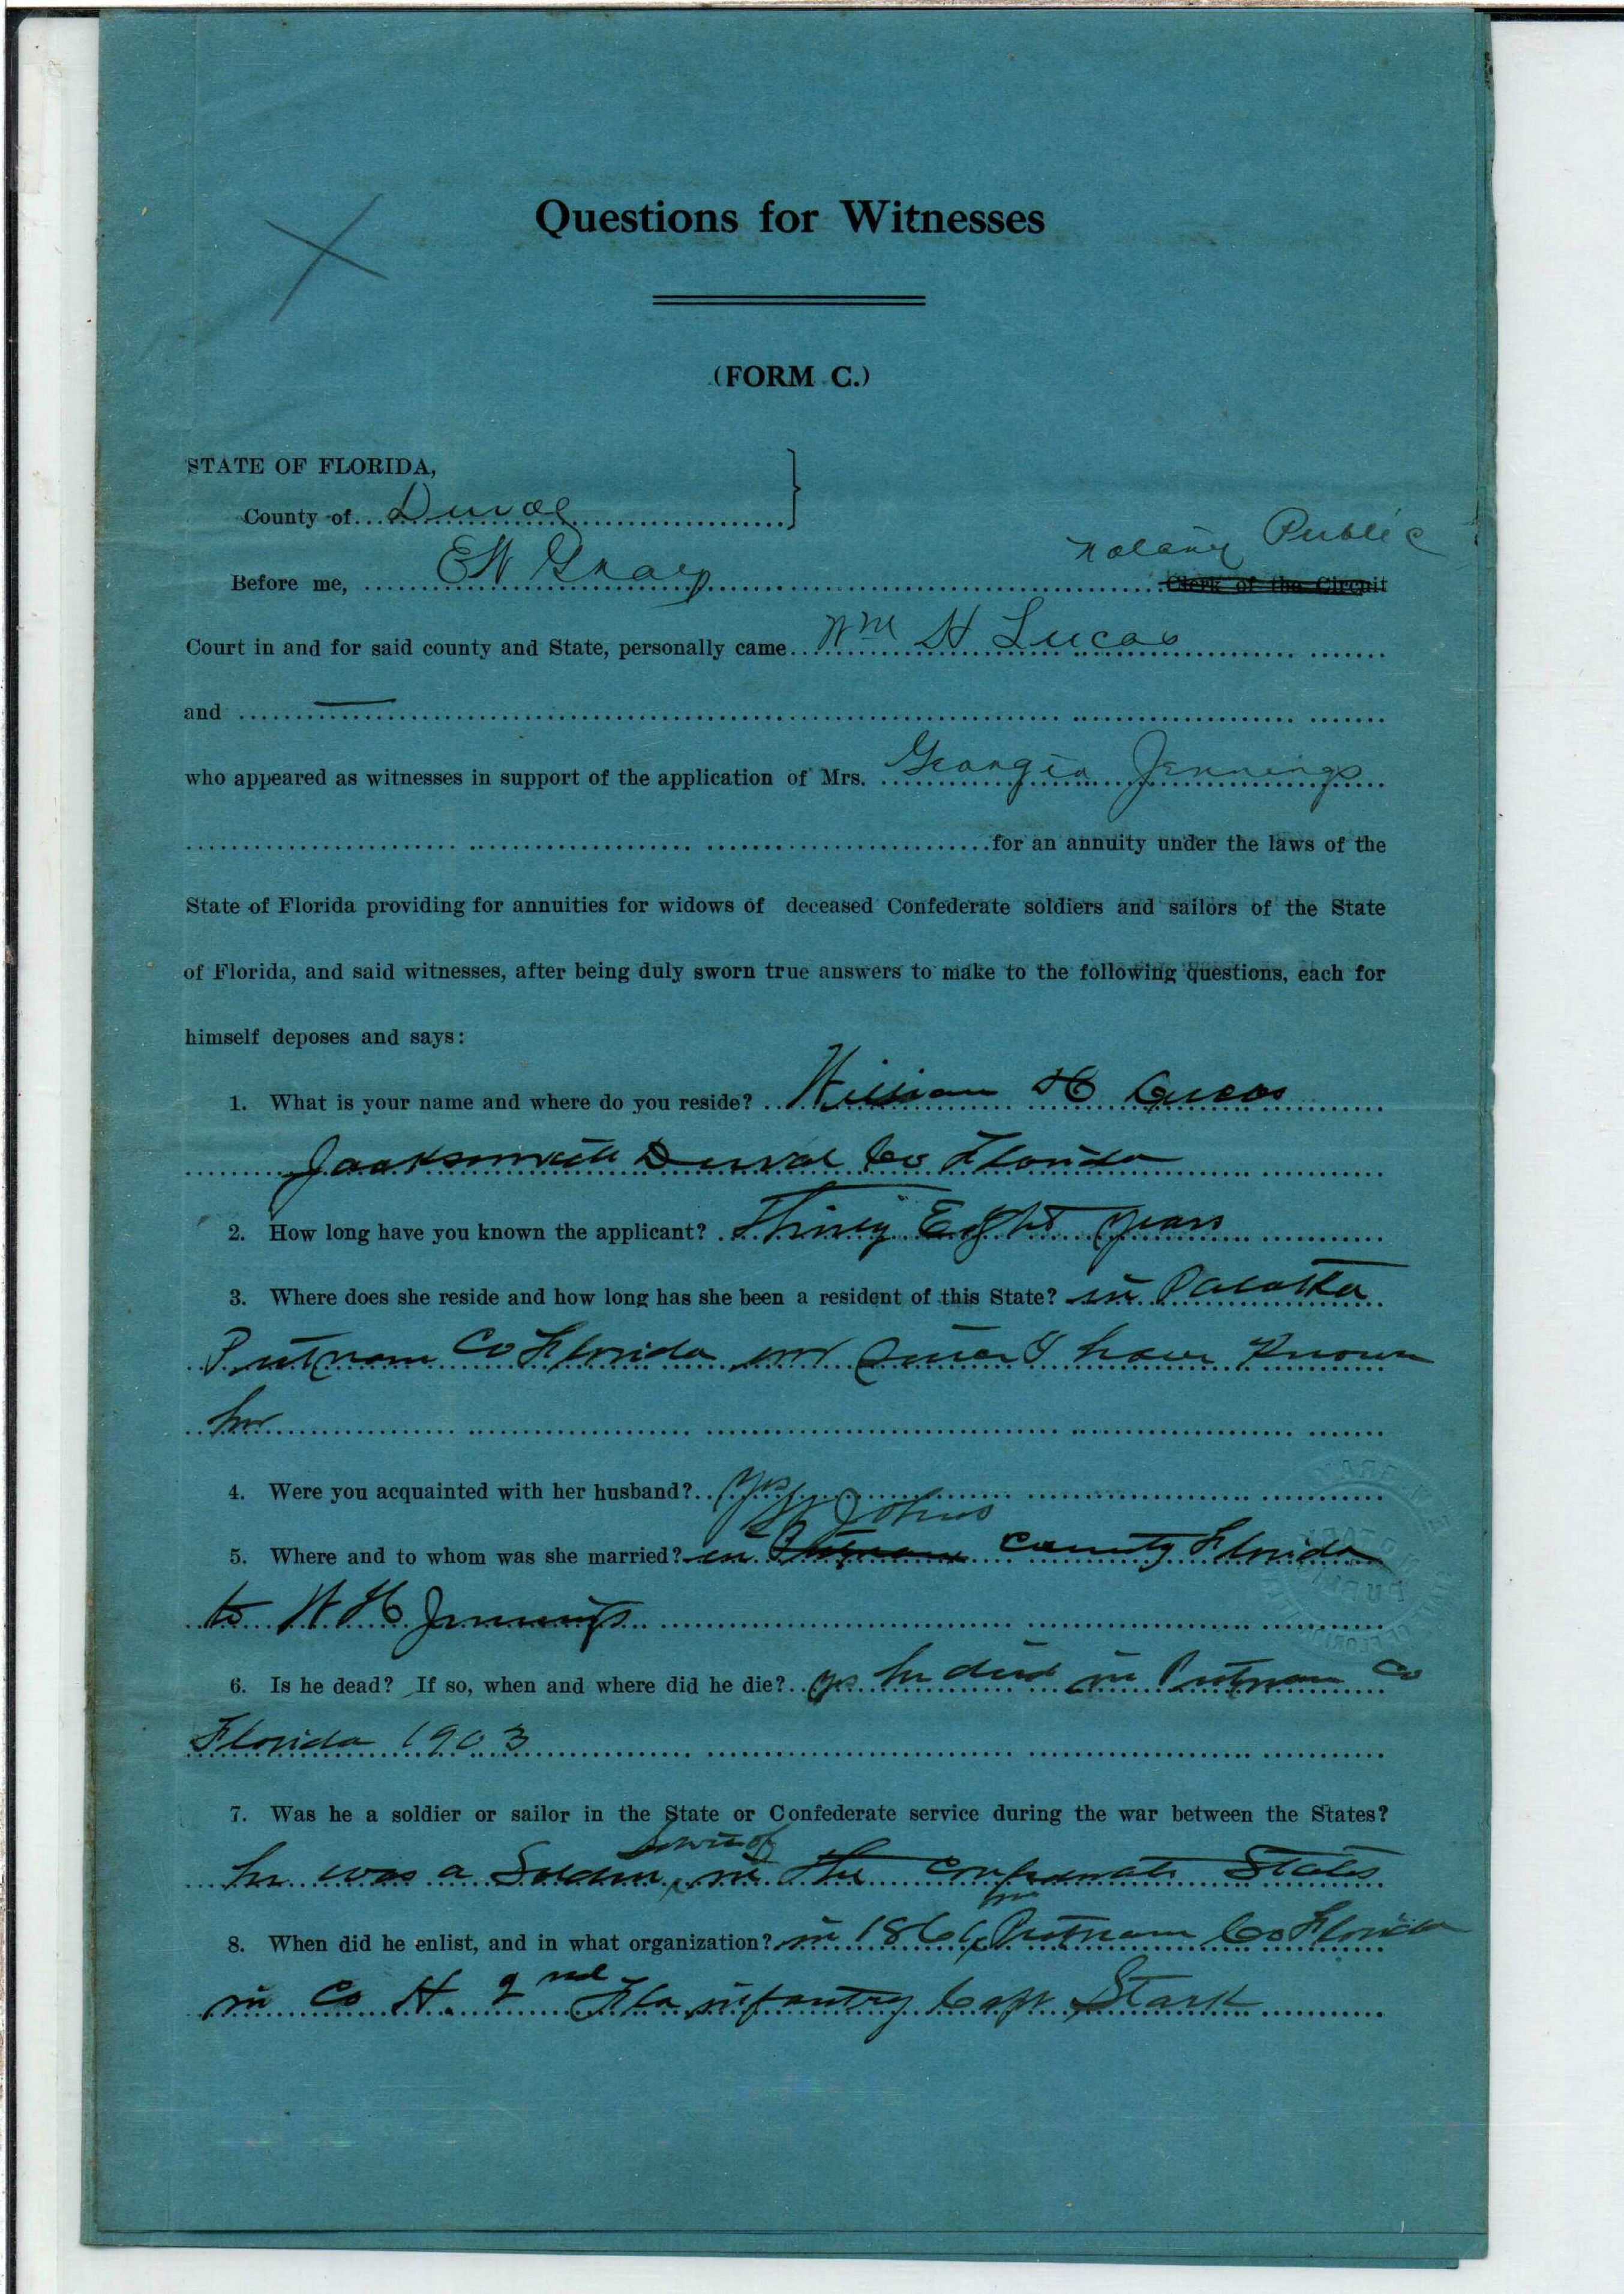 Questions for Witnesses
(FORM C.)
STATE OF FLORIDA,
County of Duval
Notary Public
Before me, EW Gray Clerk of the Circuit
Court in and for said county and State, personally came Wm H Lucas
and —
who appeared as witnesses in support of the application of Mrs. Georgia Jennings
for an annuity under the laws of the
State of Florida providing for annuities for widows of deceased Confederate soldiers and sailors of the State
of Florida, and said witnesses, after being duly sworn true answers to make to the following questions, each for
himself deposes and says:
1. What is your name and where do you reside? William H Lucas
Jacksonville Duval Co Florida
2. How long have you known the applicant? Thirty Eight years
3. Where does she reside and how long has she been a resident of this State? in Palatka
Putnam Co Florida ever since I have Known
her
4. Were you acquainted with her husband? Yes
St Johns
5. Where and to whom was she married? in Putnam County Florida
to W H Jennings
6. Is he dead? If so, when and where did he die? yes he died in Putnam Co
Florida 1903
7. Was he a soldier or sailor in the State or Confederate service during the war between the States?
he was a Soldier in the Confederate States
8. When did he enlist, and in what organization? in 1861 in Putnam Co Florida
in Co H. 2nd Fla infantry Capt Stark